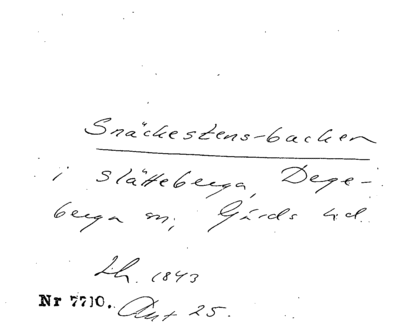 Snäckestens-backen
i Slätteberga, Dege-
berga sn, Gärds hd.
Lh. 1843
Nr 7710. Ant 25.